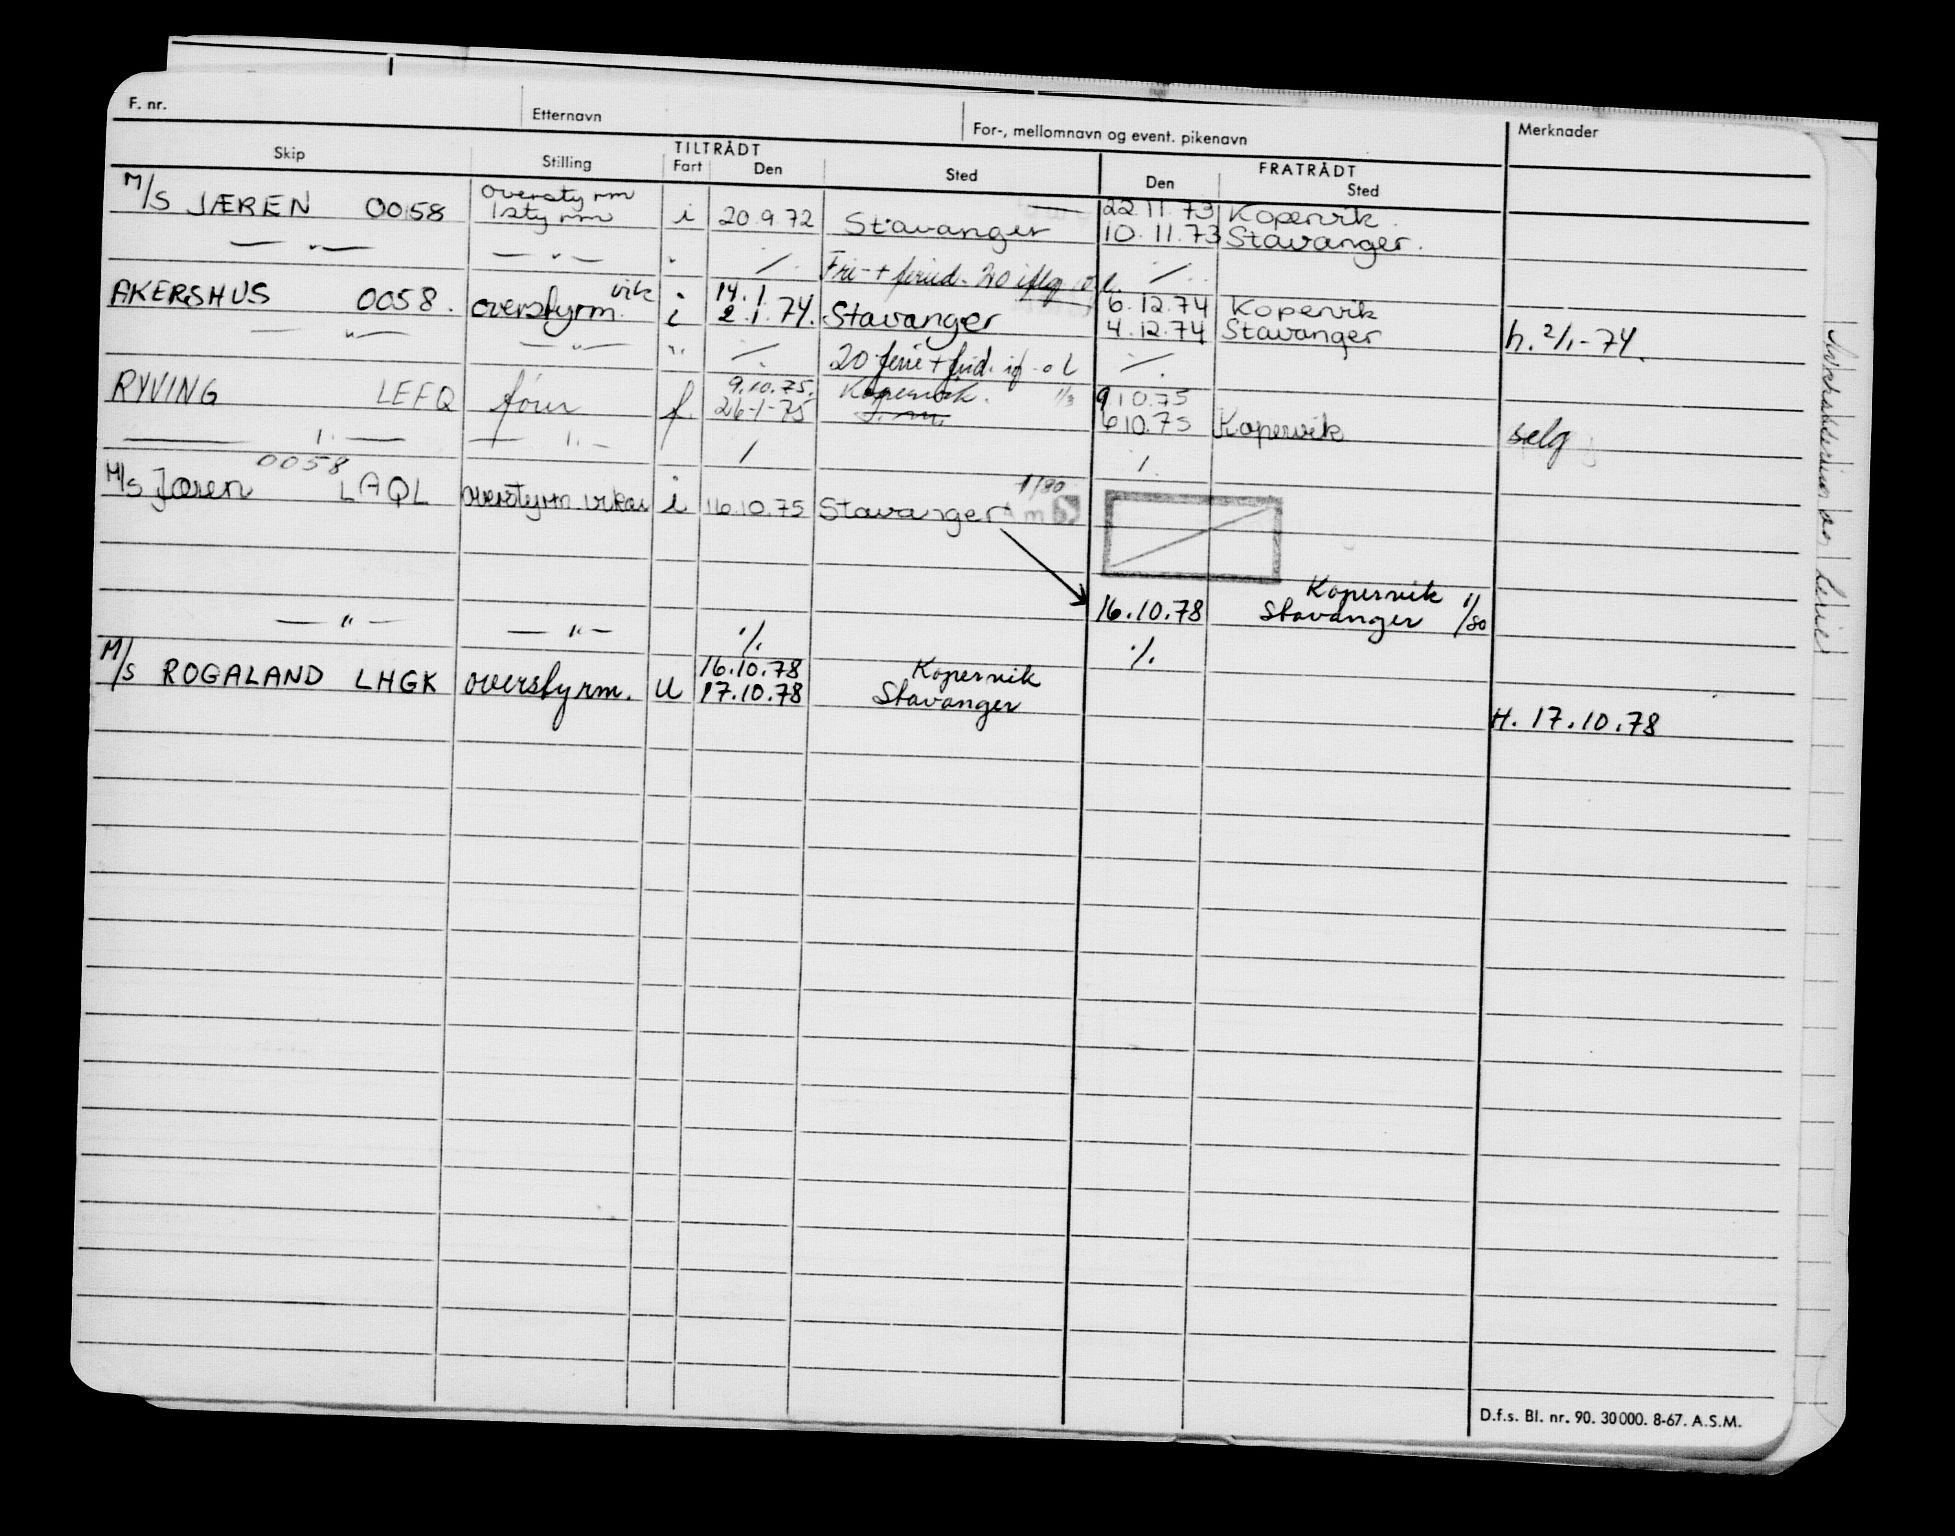 F. nr. Etternavn For-, mellomnavn og event. pikenavn Merknader
Skip Stilling TILTRÅDT FRATRÅDT
Fart Den Sted Den Sted
overstyrm 22.11.73 Kopervik.
M/S JÆREN 0058 1styrm i 20.9.72 Stavanger 10.11.73 Stavanger.
— " — — " — " / . Fri- + / .
vik 14.1. 6.12.74 Kopervik
AKERSHUS 0058. overstyrm. i 2.1.74. Stavanger 4.12.74 Stavanger h. 2/1-74.
— " — — " — " / . 20 ferie + frid. / .
9.10.75. Kopervik. 1/3 9.10.75
RYVING LEFQ f. 26-1-75 6.10.75 Kopervik selg
— 1. — — 1. — / / .
0058 1/80
M/S Jæren LAQL overstyrm. vikar i 16.10.75 Stavanger
Kopervik
16.10.78 Stavanger 1/80
— " — — " — ./. ./.
16.10.78 Kopervik
M/S ROGALAND LHGK overstyrm. U 17.10.78 Stavanger H. 17.10.78
D.f.s. Bl. nr. 90. 30000. 8-67. A.S.M.